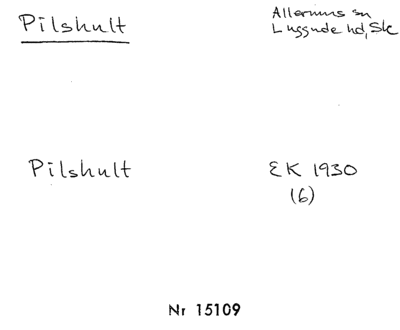 Pilshult
Allerums sn
Luggude hd, Sk
Pilshult
EK 1930
(6)
Nr 15109